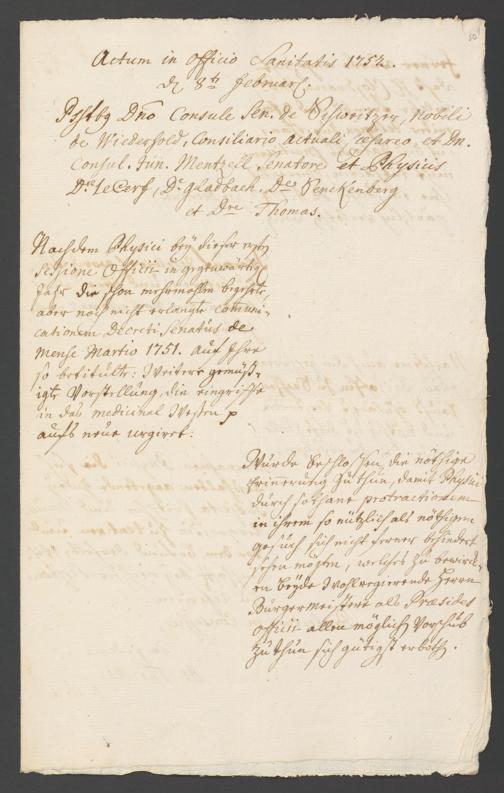 50
Actum in Officio Sanitatis 1752.
d. 8ten Februar.
Dno Consule Sen. de Nobili
de Wiederhold, Consiliario actuali Cæsareo et Dn.
Consul. Jun. Mentzell Senatore et Physicis
Dre le Cerf, Dre Gladbach, Dre Senckenberg
et Dre Thomas.
Nachdem Physici bey dieser
Sessione Officii in gegenwärtig
Jahr die schon mehrmahlen begehrte,
aber noch nicht erlangte communi-
cationem Decreti Senatus de
Mense Martio 1751. auf Ihre
so betitulte: Weitere gemüß-
igte Vorstellung, die eingriffe
in das medicinal Wesen p
aufs neue urgiret:
Wurde beschlossen, die nöthige
Erinerung zu thun, damit Physici
durch solthane protractionem
in ihrem so nützlich als nöthigen
gesuch sich nicht ferner behindert
sehen mögten, welches zu bewirck-
en beyde Wohlregierende Herren
Burgermeistere als Præsides
Officii allen möglich Vorschub
zu thun sich gütigst erboth.